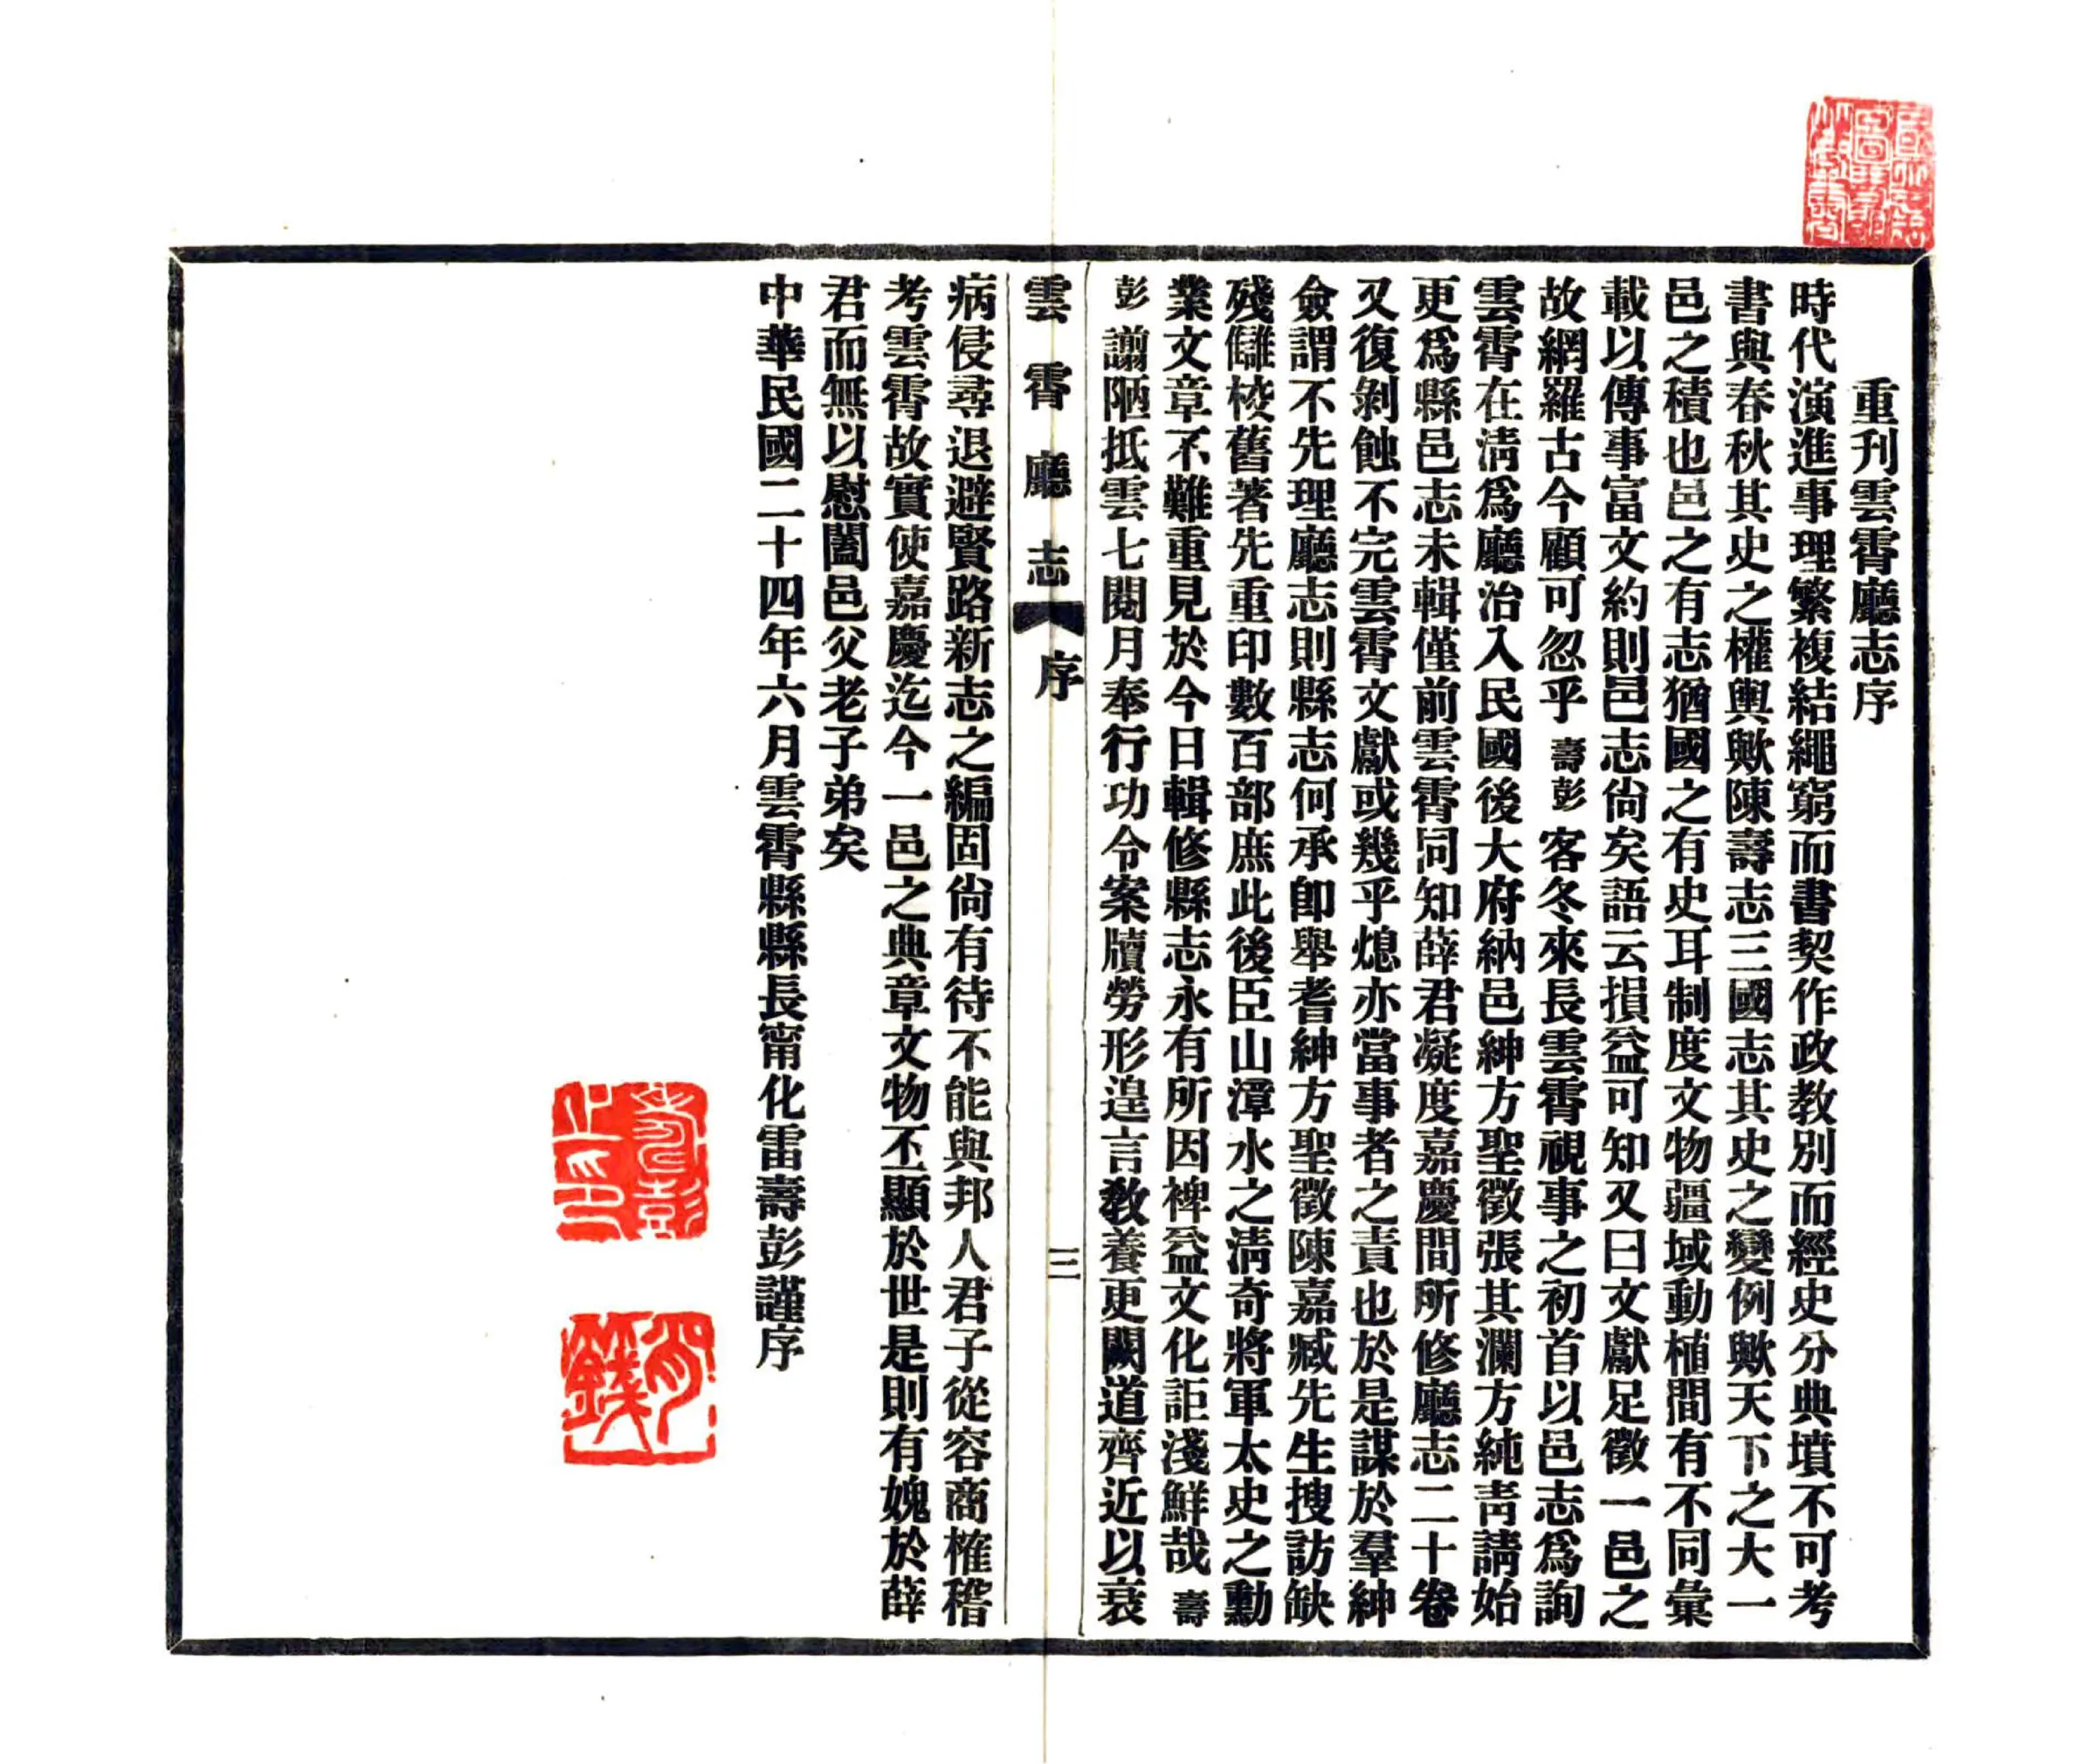 重刊雲霄廳志序
時代演進事理繁複結繩窮而書契作政教別而經史分典墳不可考
書與春秋其史之權輿歟陳壽志三國志其史之變例歟天下之大一
邑之積也邑之有志猶國之有史耳制度文物疆域動植間有不同彙
載以傳事富文約則邑志尙矣語云損益可知又曰文獻足徵一邑之
故網羅古今顧可忽乎壽彭客冬來長雲霄視事之初首以邑志爲詢
雲霄在淸爲廳治入民國後大府納邑紳方聖徵張其瀾方純靑請始
更爲縣邑志未輯僅前雲霄同知薛君凝度嘉慶間所修廳志二十卷
又復剝蝕不完雲霄文獻或幾乎熄亦當事者之責也於是謀於羣紳
僉謂不先理廳志則縣志何承卽舉耆紳方聖徵陳嘉臧先生搜訪缺
殘讎校舊著先重印數百部庶此後臣山漳水之淸奇將軍太史之勳
業文章不難重見於今日輯修縣志永有所因裨益文化詎淺鮮哉壽
彭謭陋抵雲七閱月奉行功令案牘勞形遑言敎養更闕道齊近以衰
雲霄廳志 序 三
病侵尋退避賢路新志之編固尙有待不能與邦人君子從容商榷稽
考雲霄故實使嘉慶迄今一邑之典章文物丕顯於世是則有媿於薛
君而無以慰闔邑父老子弟矣
中華民國二十四年六月雲霄縣縣長甯化雷壽彭謹序
壽彭之印